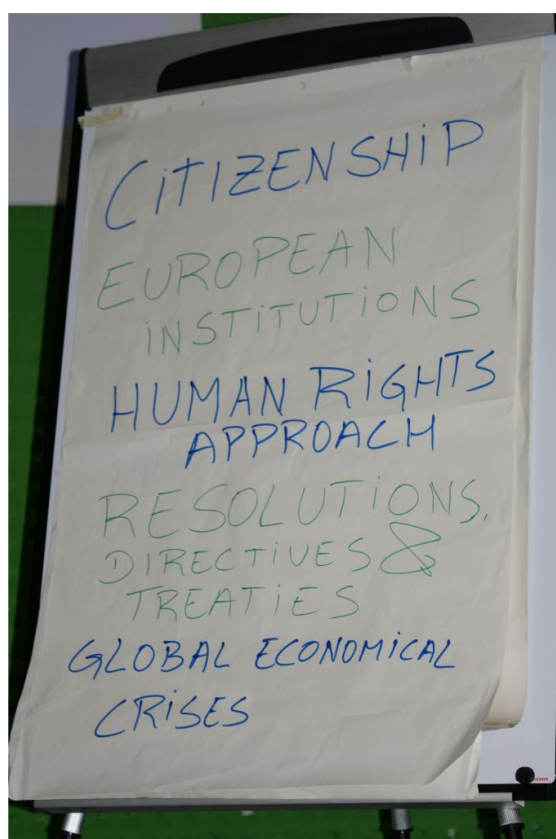 CiTIZENSHiP
EUROPEAN
iNSTiTUTiONS
HUMAN RiGHTS
APPROACH
RESOLUTiONS,
DiRECTiVES &
TREATiES
GLOBAL ECONOMiCAL
CRiSES